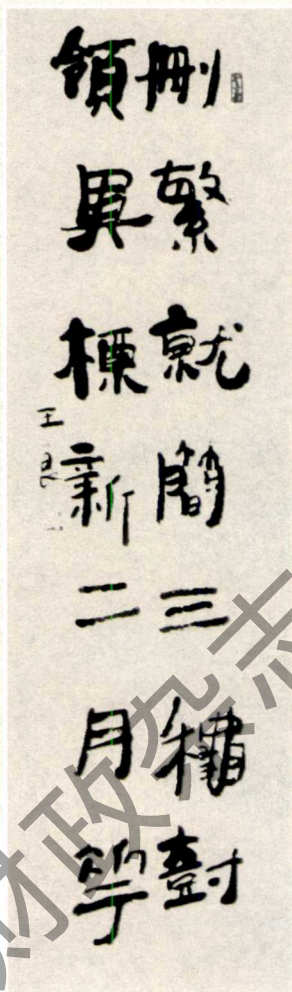 刪繁就簡三秋樹
領異標新二月花
王良
财政杂志